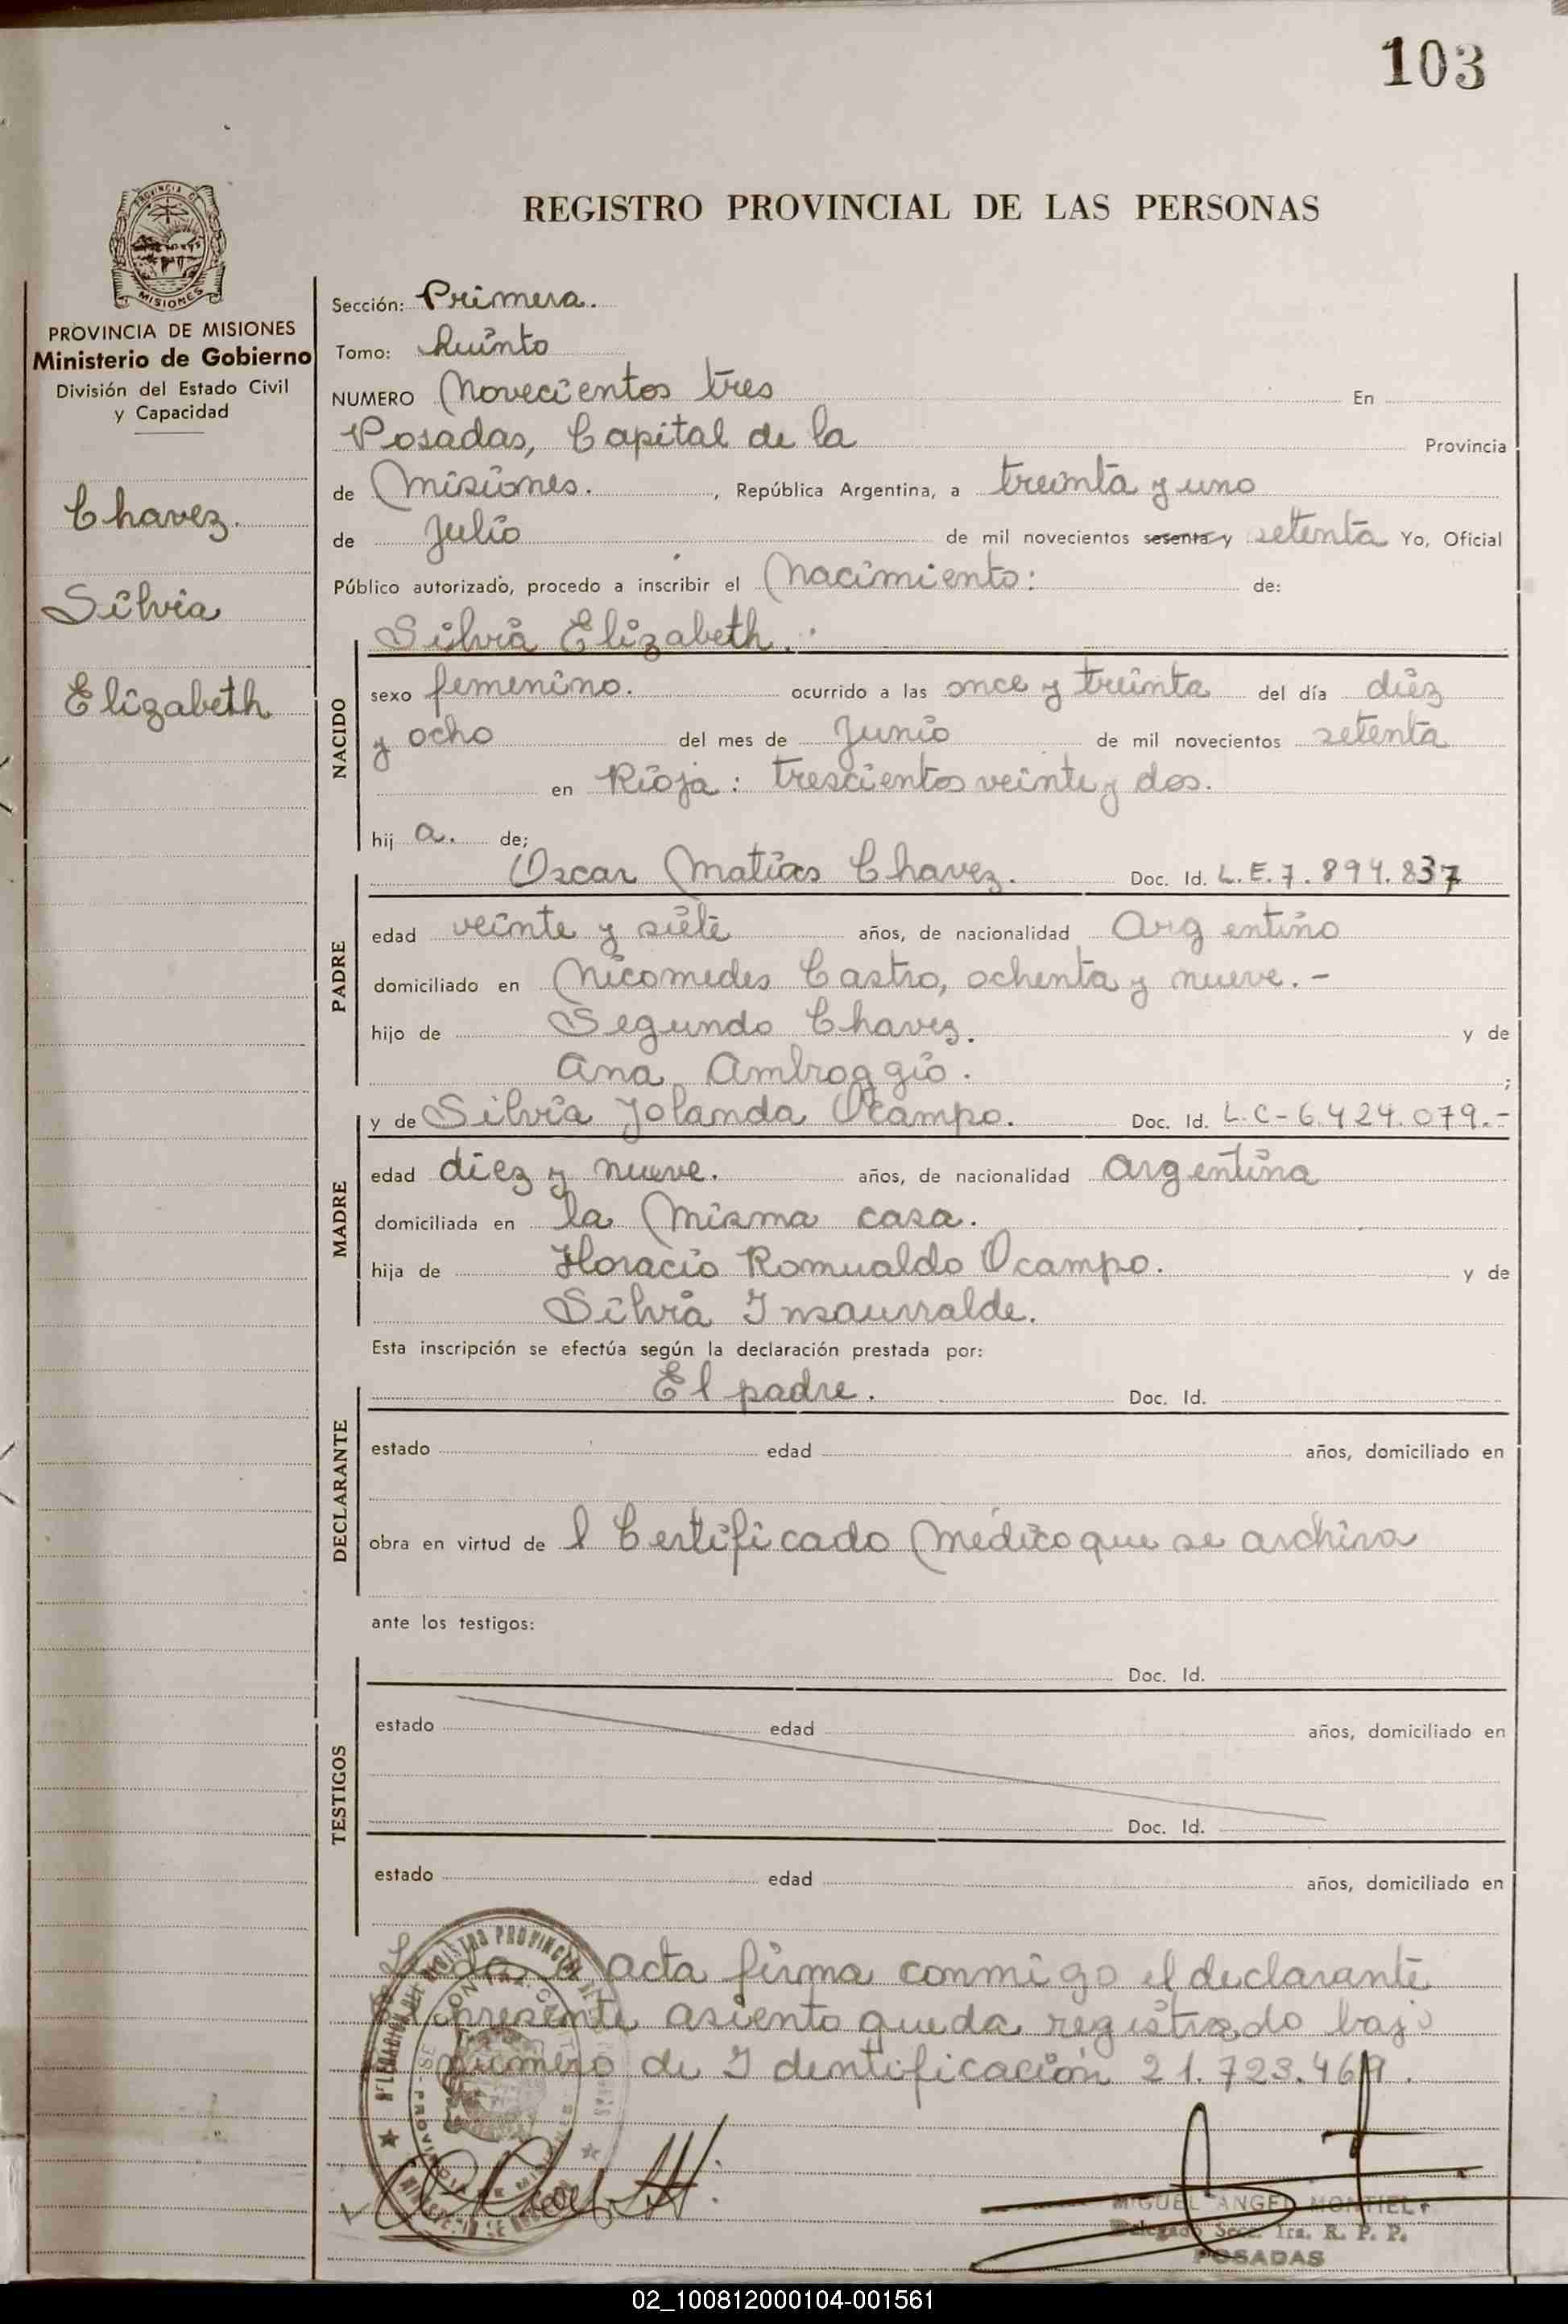 103
PROVINCIA DE
MISIONES
REGISTRO PROVINCIAL DE LAS PERSONAS
PROVINCIA DE MISIONES
Ministerio de Gobierno
División del Estado Civil
y Capacidad
Chavez.
Silvia
Elizabeth
Sección: Primera.
Tomo: Quinto
NUMERO Novecientos tres En
Posadas, Capital de la Provincia
de Misiones. , República Argentina, a treinta y uno
de Julio de mil novecientos sesenta y setenta Yo, Oficial
Público autorizado, procedo a inscribir el Nacimiento: de:
Silvia Elizabeth.
NACIDO
sexo femenino. ocurrido a las once y treinta del día diez
y ocho del mes de Junio de mil novecientos setenta
en Rioja: trescientos veinte y dos.
hij a. de;
Oscar Matias Chavez. Doc. Id. L.E.7.894.837
PADRE
edad veinte y siete años, de nacionalidad Argentino
domiciliado en Nicomedes Castro, ochenta y nueve.-
hijo de Segundo Chavez. y de
Ana Ambroggio. ;
y de Silvia Yolanda Ocampo. Doc. Id. L.C-6.424.079.-
MADRE
edad diez y nueve. años, de nacionalidad argentina
domiciliada en la misma casa.
hija de Horacio Romualdo Ocampo. y de
Silvia Insaurralde.
Esta inscripción se efectúa según la declaración prestada por:
El padre. Doc. Id.
DECLARANTE
estado edad años, domiciliado en
obra en virtud de l Certificado Médico que se archiva
ante los testigos:
Doc. Id.
TESTIGOS
estado edad años, domiciliado en
Doc. Id.
estado edad años, domiciliado en
Leida el acta firma conmigo el declarante
El presente asiento queda registrado bajo
numero de Identificación 21.723.469.
MIGUEL ANGEL MONTIEL
Delegado Secc. 1ra. R. P. P.
POSADAS
02_100812000104-001561